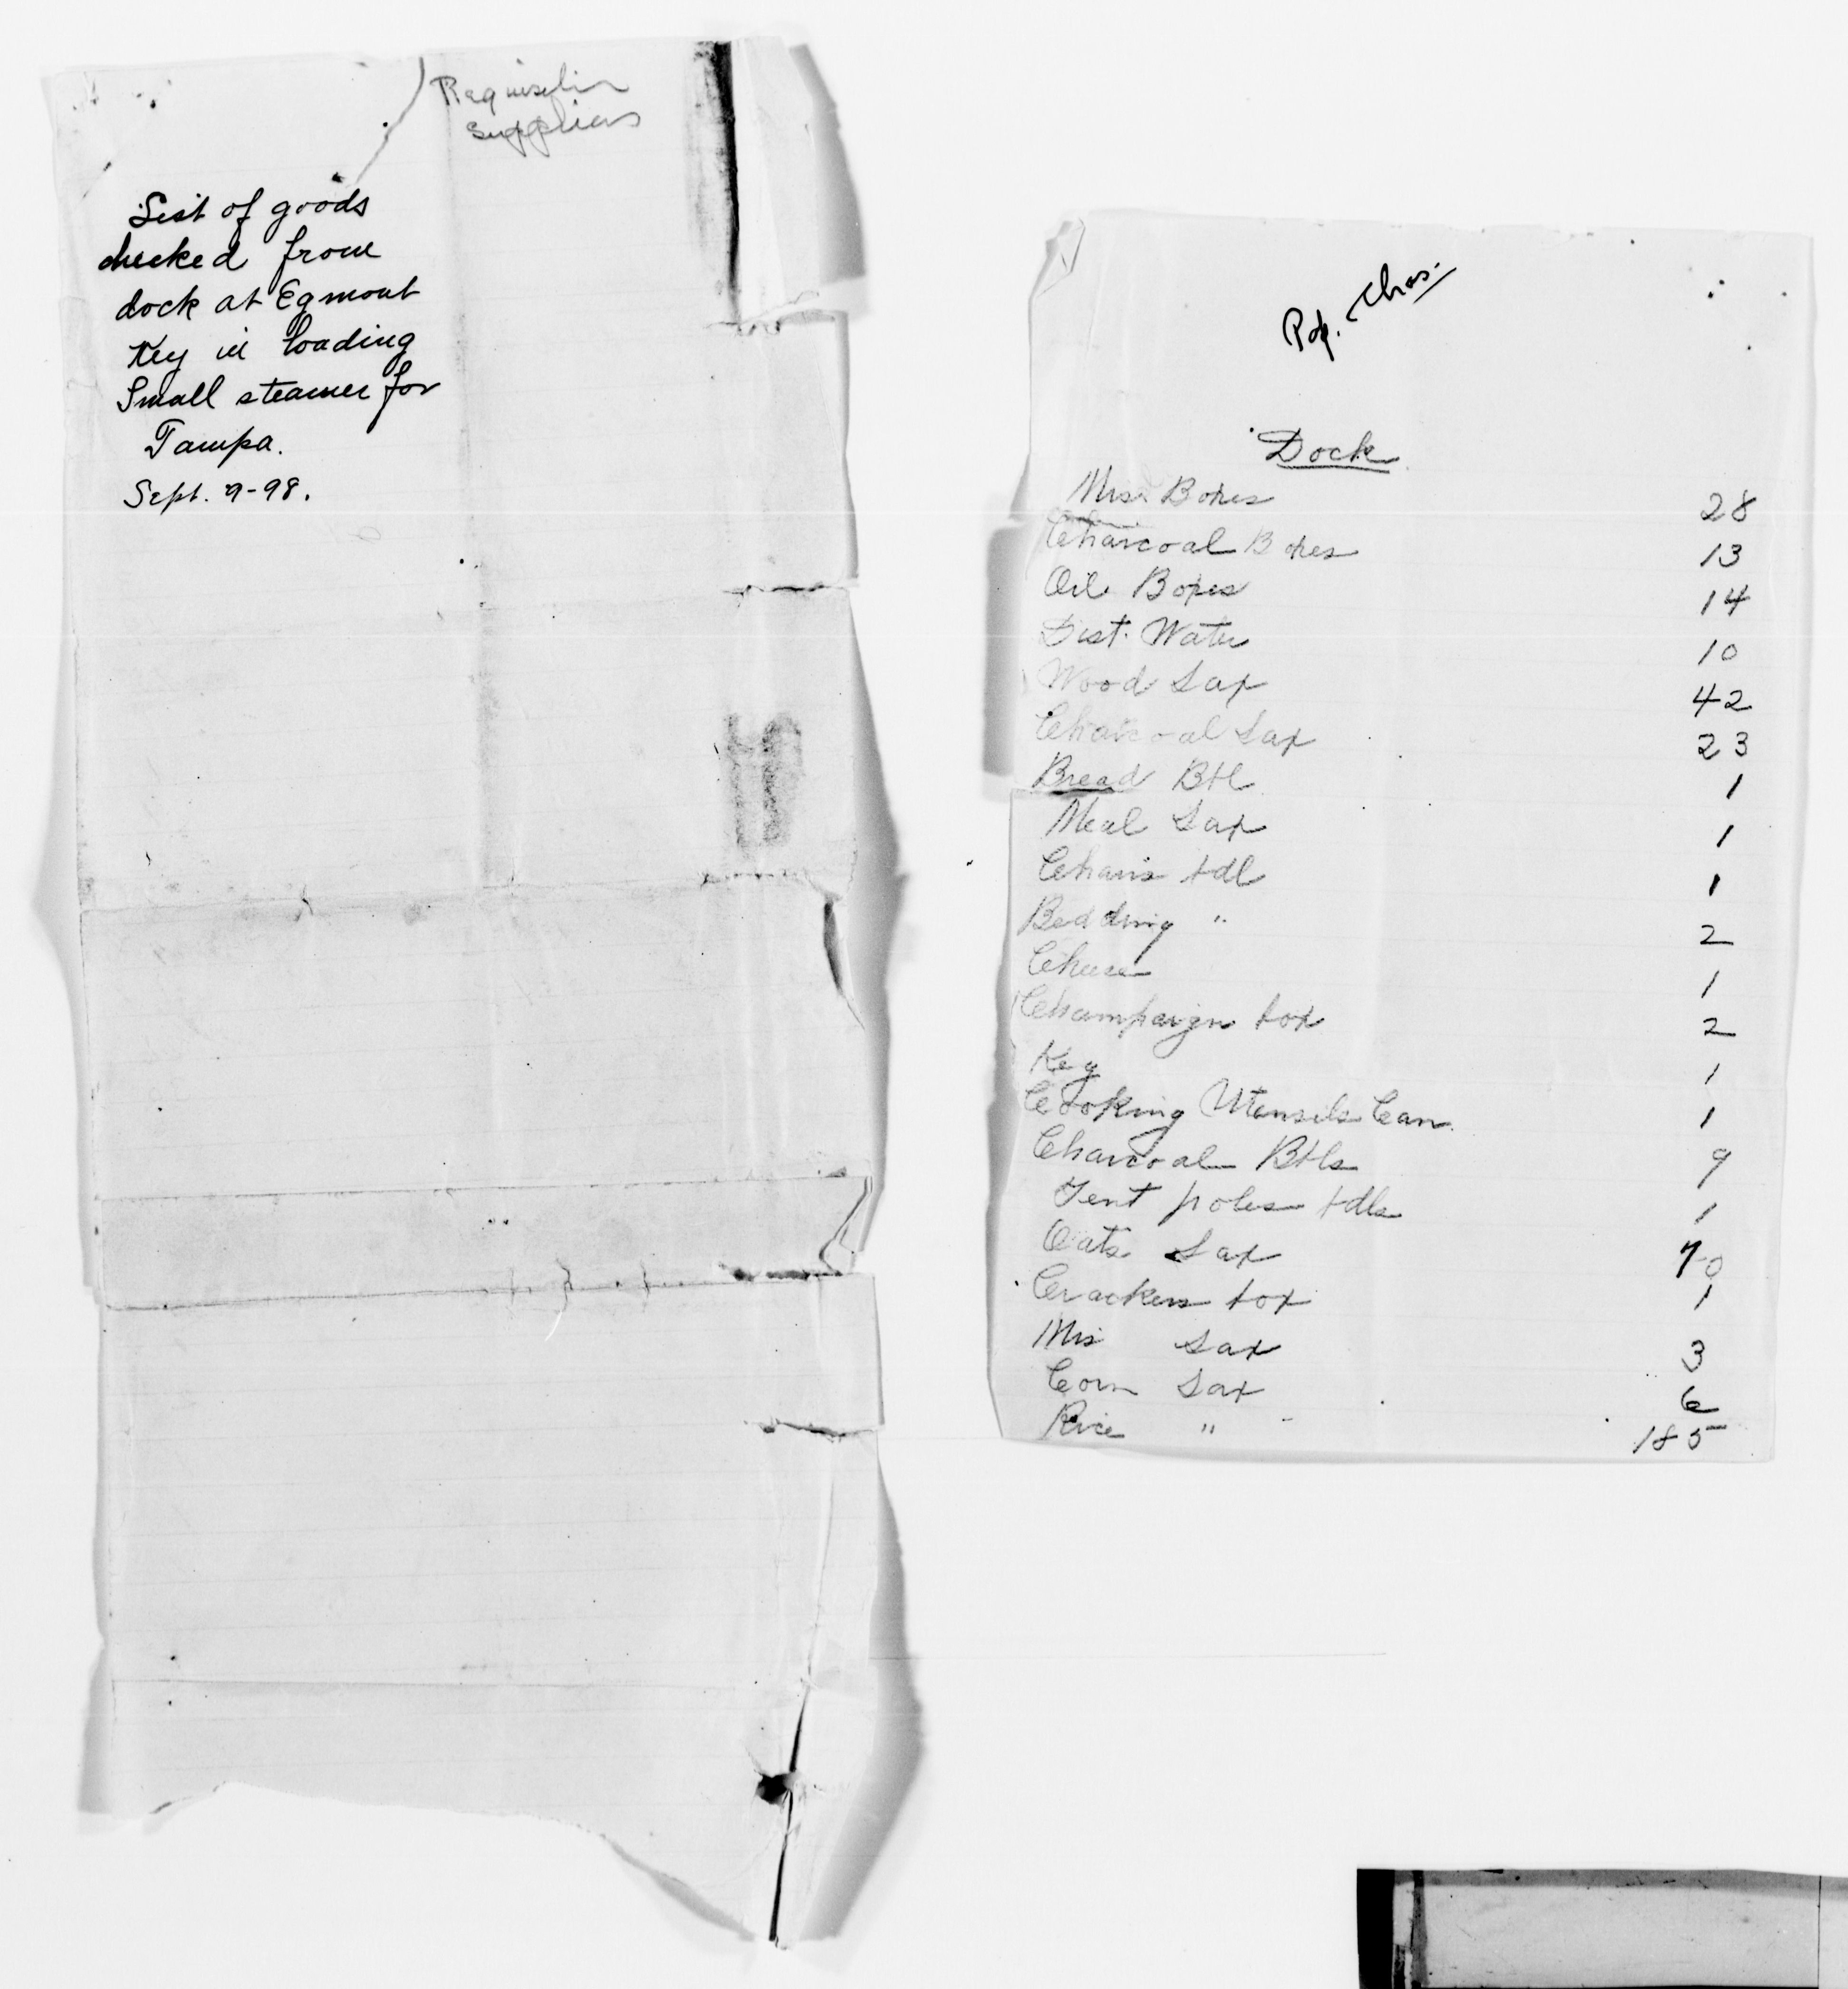 Requisition
Supplies
List of goods
checked from
dock at Egmont
Key in loading
Small steamer for
Tampa.
Sept. 9-98.
Chas.
Dock
Mis. Boxes 28
Charcoal Boxes 13
Oil Boxes 14
Dist. Water 10
Wood Sax 42
Charcoal Sax 23
Bread Bbl 1
Meal Sax 1
Chairs bdl 1
Bedding " 2
Cheese 1
Champaign box 2
Keg 1
Cooking Utensils Can 1
Charcoal Bbls 9
Tent poles bdls 1
Oats Sax 70
Crackers box 1
Mis Sax 3
Corn Sax 6
Rice " 185